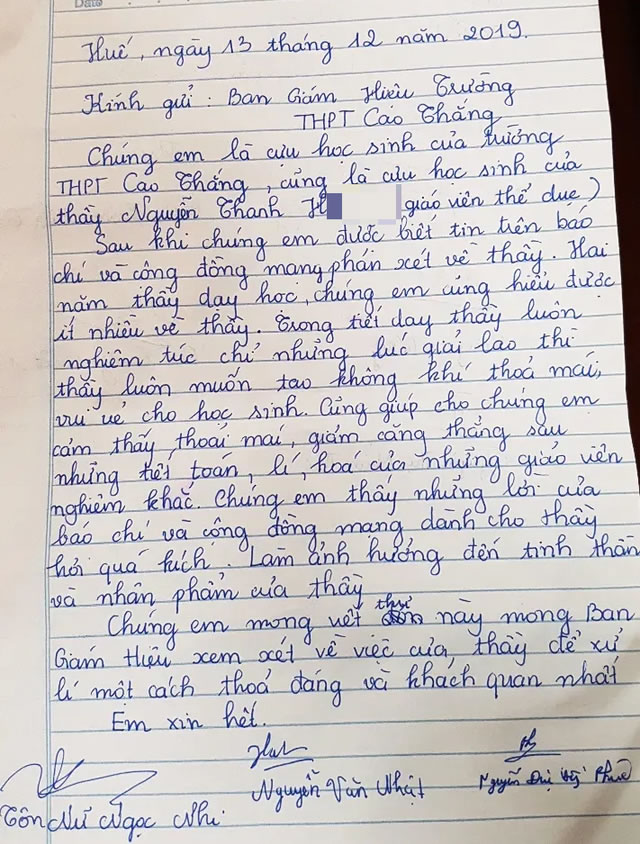 Date
Huế, ngày 13 tháng 12 năm 2019.
Kính gửi : Ban Giám Hiệu Trường
THPT Cao Thắng
Chúng em là cựu học sinh của trường
THPT Cao Thắng , cũng là cựu học sinh của
thầy Nguyễn Thanh H giáo viên thể dục)
Sau khi chúng em được biết tin trên báo
chí và công đồng mạng phán xét về thầy. Hai
năm thầy dạy học, chúng em cũng hiểu được
ít nhiều về thầy. Trong tiết dạy thầy luôn
nghiêm túc chỉ những lúc giải lao thì
thầy luôn muốn tạo không khí thoả mái,
vui vẻ cho học sinh. Cũng giúp cho chúng em
cảm thấy thoải mái, giảm căng thẳng sau
những tiết toán, lí, hoá của những giáo viên
nghiêm khắc. Chúng em thấy những lời của
báo chí và cộng đồng mạng dành cho thầy
hơi quá khích. Làm ảnh hưởng đến tinh thần
và nhân phẩm của thầy
Chúng em mong viết thư này mong Ban
Giám Hiệu xem xét về việc của thầy để xử
lí một cách thoả đáng và khách quan nhất
Em xin hết.
Nguyễn Văn Nhật
Tôn Nữ Ngọc Nhi.
Nguyễn